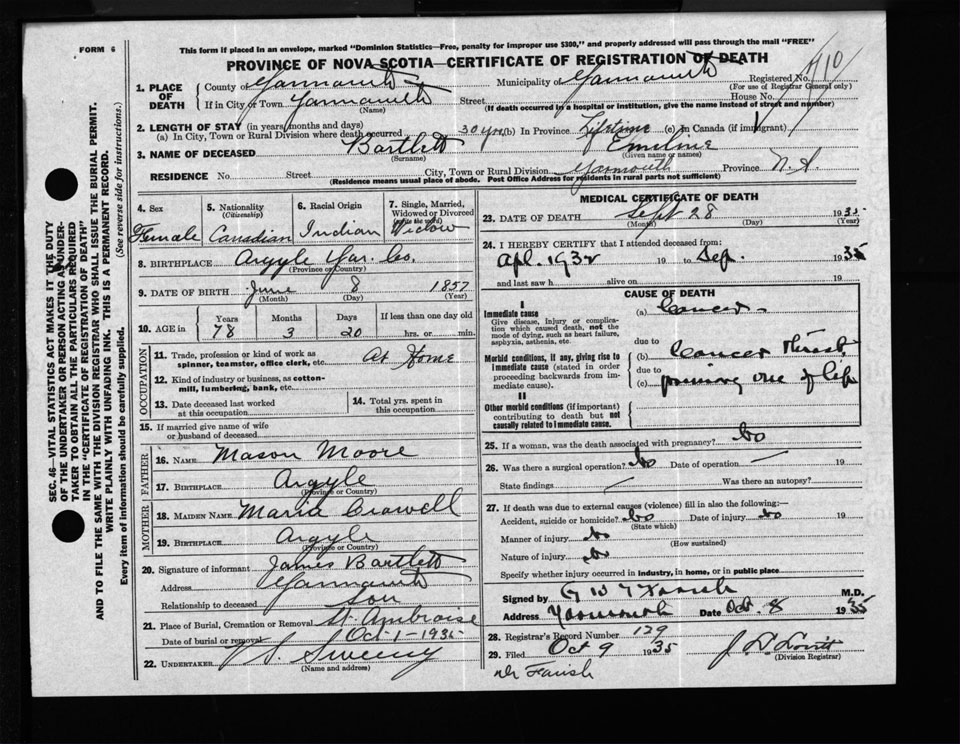 FORM 6
This form if placed in an envelope, marked "Dominion Statistics—Free, penalty for improper use $300," and properly addressed will pass through the mail "FREE"
PROVINCE OF NOVA SCOTIA—CERTIFICATE OF REGISTRATION OF DEATH
1. PLACE OF DEATH County of Yarmouth Municipality of Yarmouth Registered No.
(For use of Registrar General only)
If in City or Town Yarmouth Street House No.
(Name) (If death occurred in a hospital or institution, give the name instead of street and number)
2. LENGTH OF STAY (in years, months and days)
(a) In City, Town or Rural Division where death occurred 30 yrs (b) In Province Lifetime (c) in Canada (if immigrant)
3. NAME OF DECEASED Bartlett Emeline
(Surname) (Given name or names)
RESIDENCE No. Street City, Town or Rural Division Yarmouth Province N.S.
(Residence means usual place of abode. Post Office Address for residents in rural parts not sufficient)
4. Sex Female
5. Nationality (Citizenship) Canadian
6. Racial Origin Indian
7. Single, Married, Widowed or Divorced Widow
8. BIRTHPLACE Argyle Yar. Co.
(Province or Country)
9. DATE OF BIRTH June 8 1857
(Month) (Day) (Year)
10. AGE in Years Months Days If less than one day old
78 3 20 hrs. or min.
OCCUPATION
11. Trade, profession or kind of work as spinner, teamster, office clerk, etc. At Home
12. Kind of industry or business, as cotton-mill, lumbering, bank, etc.
13. Date deceased last worked at this occupation
14. Total yrs. spent in this occupation
15. If married give name of wife or husband of deceased
FATHER
16. NAME Mason Moore
17. BIRTHPLACE Argyle
(Province or Country)
MOTHER
18. MAIDEN NAME Maria Crowell
19. BIRTHPLACE Argyle
(Province or Country)
20. Signature of informant James Bartlett
Address Yarmouth
Relationship to deceased Son
21. Place of Burial, Cremation or Removal St. Ambroise
Date of burial or removal Oct-1-1935
22. UNDERTAKER Sweeny
(Name and address)
MEDICAL CERTIFICATE OF DEATH
23. DATE OF DEATH Sept 28 1935
(Month) (Day) (Year)
24. I HEREBY CERTIFY that I attended deceased from:
Apl. 1932 19 to Sep. 1935
and last saw h alive on 19
CAUSE OF DEATH
I
Immediate cause
Give disease, injury or complication which caused death, not the mode of dying, such as heart failure, asphyxia, asthenia, etc.
(a) Cancer
due to
Morbid conditions, if any, giving rise to immediate cause (stated in order proceeding backwards from immediate cause).
(b) Cancer
due to
(c) of lip
II
Other morbid conditions (if important) contributing to death but not causally related to immediate cause.
25. If a woman, was the death associated with pregnancy? No
26. Was there a surgical operation? No Date of operation 19
State findings Was there an autopsy?
27. If death was due to external causes (violence) fill in also the following:—
Accident, suicide or homicide? No Date of injury No 19
(State which)
Manner of injury No
(How sustained)
Nature of injury No
Specify whether injury occurred in industry, in home, or in public place
Signed by Farish M.D.
Address Yarmouth Date Oct. 8 1935
28. Registrar's Record Number 129
29. Filed Oct 9 1935
(Division Registrar)
Dr Farish
SEC. 46—VITAL STATISTICS ACT MAKES IT THE DUTY
OF THE UNDERTAKER OR PERSON ACTING AS UNDER-
TAKER TO OBTAIN ALL THE PARTICULARS REQUIRED
IN THE "CERTIFICATE OF REGISTRATION OF DEATH"
AND TO FILE THE SAME WITH THE DIVISION REGISTRAR WHO SHALL ISSUE THE BURIAL PERMIT.
WRITE PLAINLY WITH UNFADING INK. THIS IS A PERMANENT RECORD.
Every item of information should be carefully supplied. (See reverse side for instructions.)